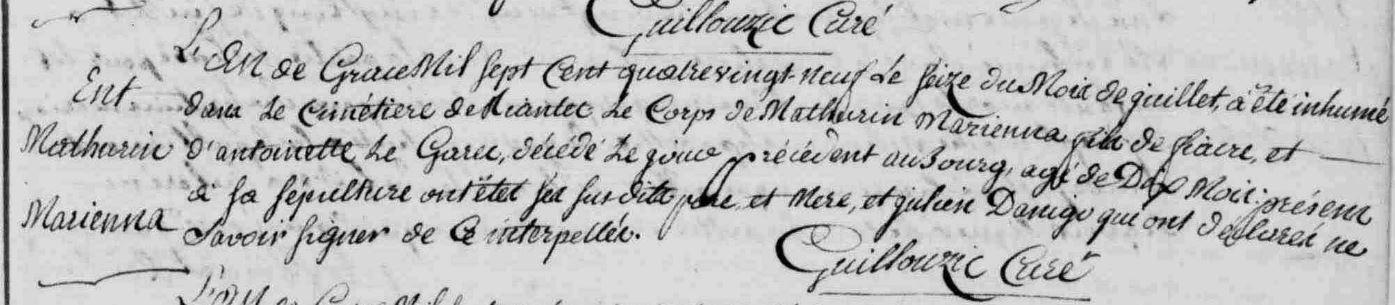 Guillouzic Curé
L'An de Grace Mil sept Cent quatrevingt-neuf le seize du Mois de juillet, a été inhumé
Ent.
dans le cimétiere de le Corps de Mathurin Marienna fils de fiacre, et
Mathurin
d'antoinette le Garec, décédé le jour précédent au Bourg, agé de Dix Mois: présens
à sa sépulture ont étet ses susdits pere et Mere, et julien Danigo qui ont déclarés ne
Marienna
Savoir signer de ce interpellés.
Guillouzic Curé
L'An de Grace Mil